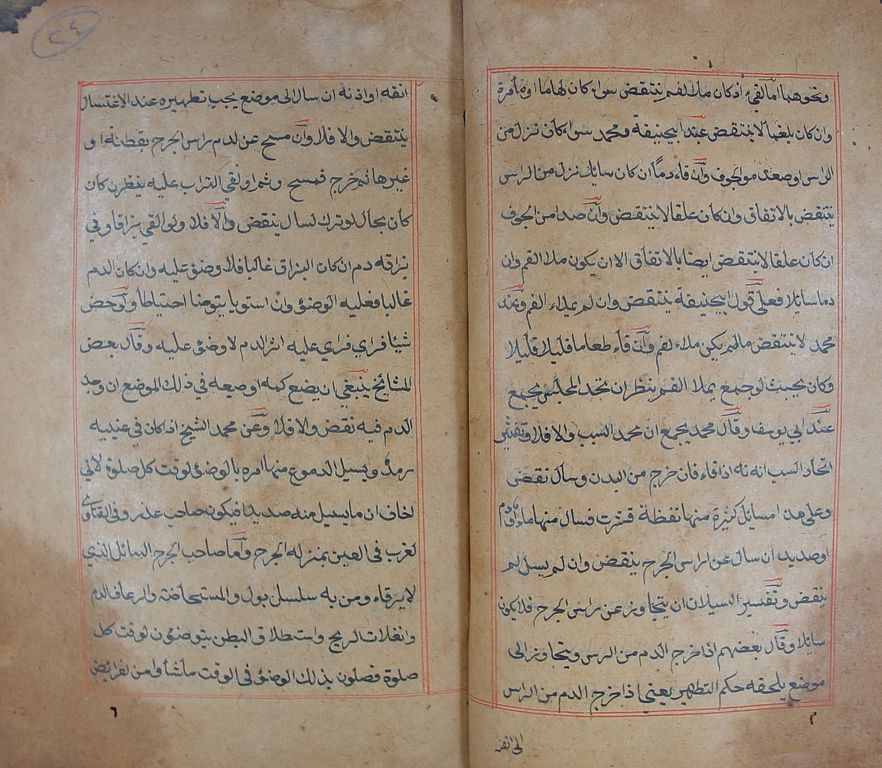 ونحوهما اما القي اذ كان ملا لفم ينتقض سواء كان لهاما او مأمرة
وان كان بلغما لا ينتقض عند ابيحنيفة ومحمد سواء كان نزل من
الراس اوصعد من الجوف وان قاء دما ان كان سايل نزل من الراس
ينتقض بالاتفاق وان كان علقا لا ينتقض وان صدا من الجوف
ان كان علقا لا ينتقض ايضا بالاتفاق الا ان يكون ملا الفم وان
دما سايلا فعلى قول ابيحنيفة ينتقض وان لم يملاء الفم وعند
محمد لا ينتقض مالم يكن ملاء لفم وان قاء طعاما قليلا قليلا
وكان بحيث لو جمع يملا الفم ينظر ان تحد المجلس يجمع
عند ابي يوسف وقال محمد يجمع ان محمد السبب والا فلا وتفسير
اتحاد السبب انه نه اذا قاء فان خرج من البدن وسال نقض
وعلى هذا مسائل كثيرة منها نفطة قشرت فسال منها ماء او دم
او صديد ان سال عن راس الجرح ينقض وان لم يسل لم
ينقض وتفسير السيلان ان يتجاوز عن راس الجرح فلا يكون
سائلا وقال بعضهم اذا خرج الدم من الرس ويتجاوز الى
موضع يلحقه حكم التطهير يعني اذا خرج الدم من الراس
الى انفه
٢٤
انفه او اذنه ان سال الى موضع يجب تطهيره عند الاغتسال
ينتقض والا فلا وان مسح عن لدم براس الجرح بقطنه او
غيرها ثم خرج فمسح وثم او لقي التراب عليه ينظر ن كان
كان بحال لو ترك لسال ينقض والا فلا ولو القي بزاقا وفي
بزاقه دم ان كان البزاق غالبا فلا وضئ عليه وان كان الدم
غالبا فعليه الوضئ وان استويا يتوضا احتياطا ولو عض
شيئا فراي فراي عليه اثر الدم لا وضئ عليه وقال بعض
المشائخ ينبغي ان يضع كمه اوصبعه في ذلك الموضع ان وجد
الدم فيه نقض والا فلا وعن محمد الشيخ اذ كان في عينيه
رمد ويسيل الدموع منها امره بالوضئ لوقت كل صلوة لاني
اخاف ان ما يسيل منه صديدا فيكون صاحب عذر وفي الفتاوى
لغرب في العين بمنزله الجرح واما صاحب الجرح السائل الذي
لا يرقاء ومن به سلسل بول والمستحاضة والرعاف الدم
وانفلات الريح واستطلاق البطن يتوضئون لوقت كل
صلوة فصلون بذلك الوضئ في الوقت ماشأوا من لفرائض